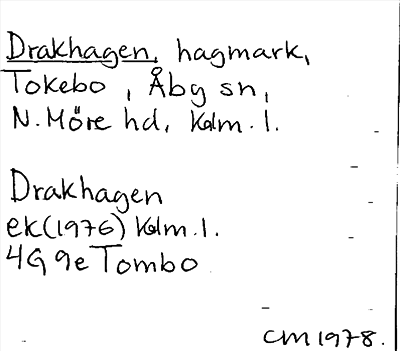 Drakhagen, hagmark,
Tokebo, Åby sn,
N. Möre hd, Kalm. l.
Drakhagen
ek (1976) Kalm. l.
4G 9e Tombo
CM 1978.